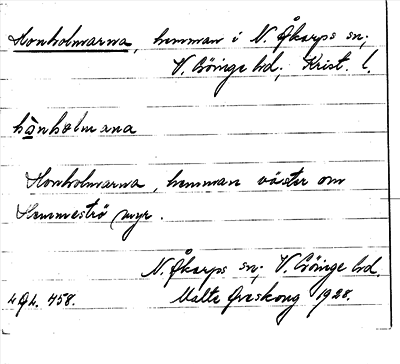 Honholmarna, hemman i N. Åkarps sn;
V. Göinge hd; Krist. l.
hånhɔlmana
Honholmarna, hemman väster om
Hemmeströ myr.
N. Åkarps sn; V. Göinge hd.
458. Malte Areskoug 1928.